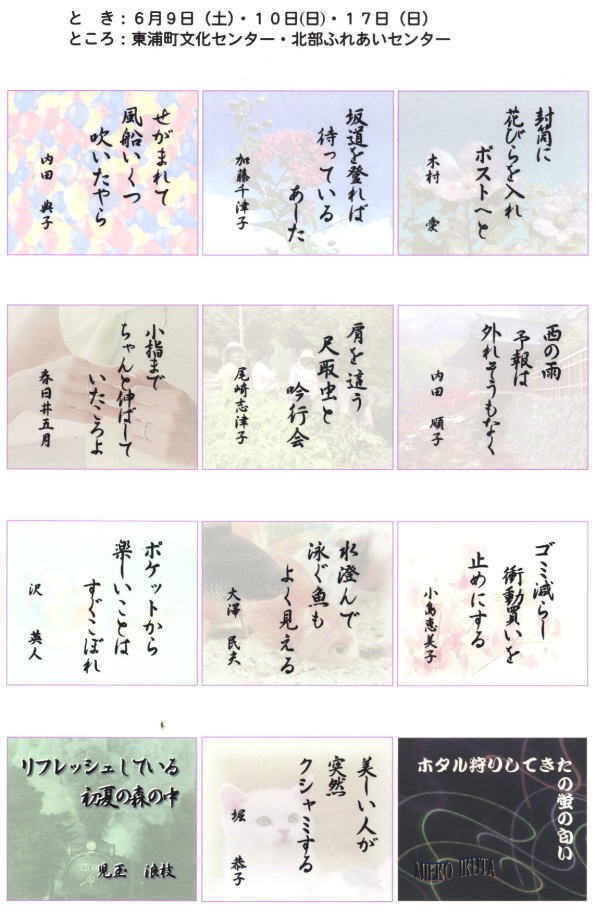 とき：６月９日（土）・１０日(日)・１７日（日）
ところ：東浦町文化センター・北部ふれあいセンター
せがまれて
風船いくつ
吹いたやら
内田 典子
坂道を登れば
待っている
あした
加藤千津子
封筒に
花びらを入れ
ポストへと
木村 愛
小指まで
ちゃんと伸ばして
いたころよ
春日井五月
肩を這う
尺取虫と
吟行会
尾崎志津子
西の雨
予報は
外れそうもなく
内田 順子
ポケットから
楽しいことは
すぐこぼれ
沢 英人
水澄んで
泳ぐ魚も
よく見える
大澤 民夫
ゴミ減らし
衝動買いを
止めにする
小島恵美子
リフレッシュしている
初夏の森の中
児玉 浪枝
美しい人が
突然
クシャミする
堀 恭子
ホタル狩りしてきた
の蛍の匂い
MIEKO IKUTA